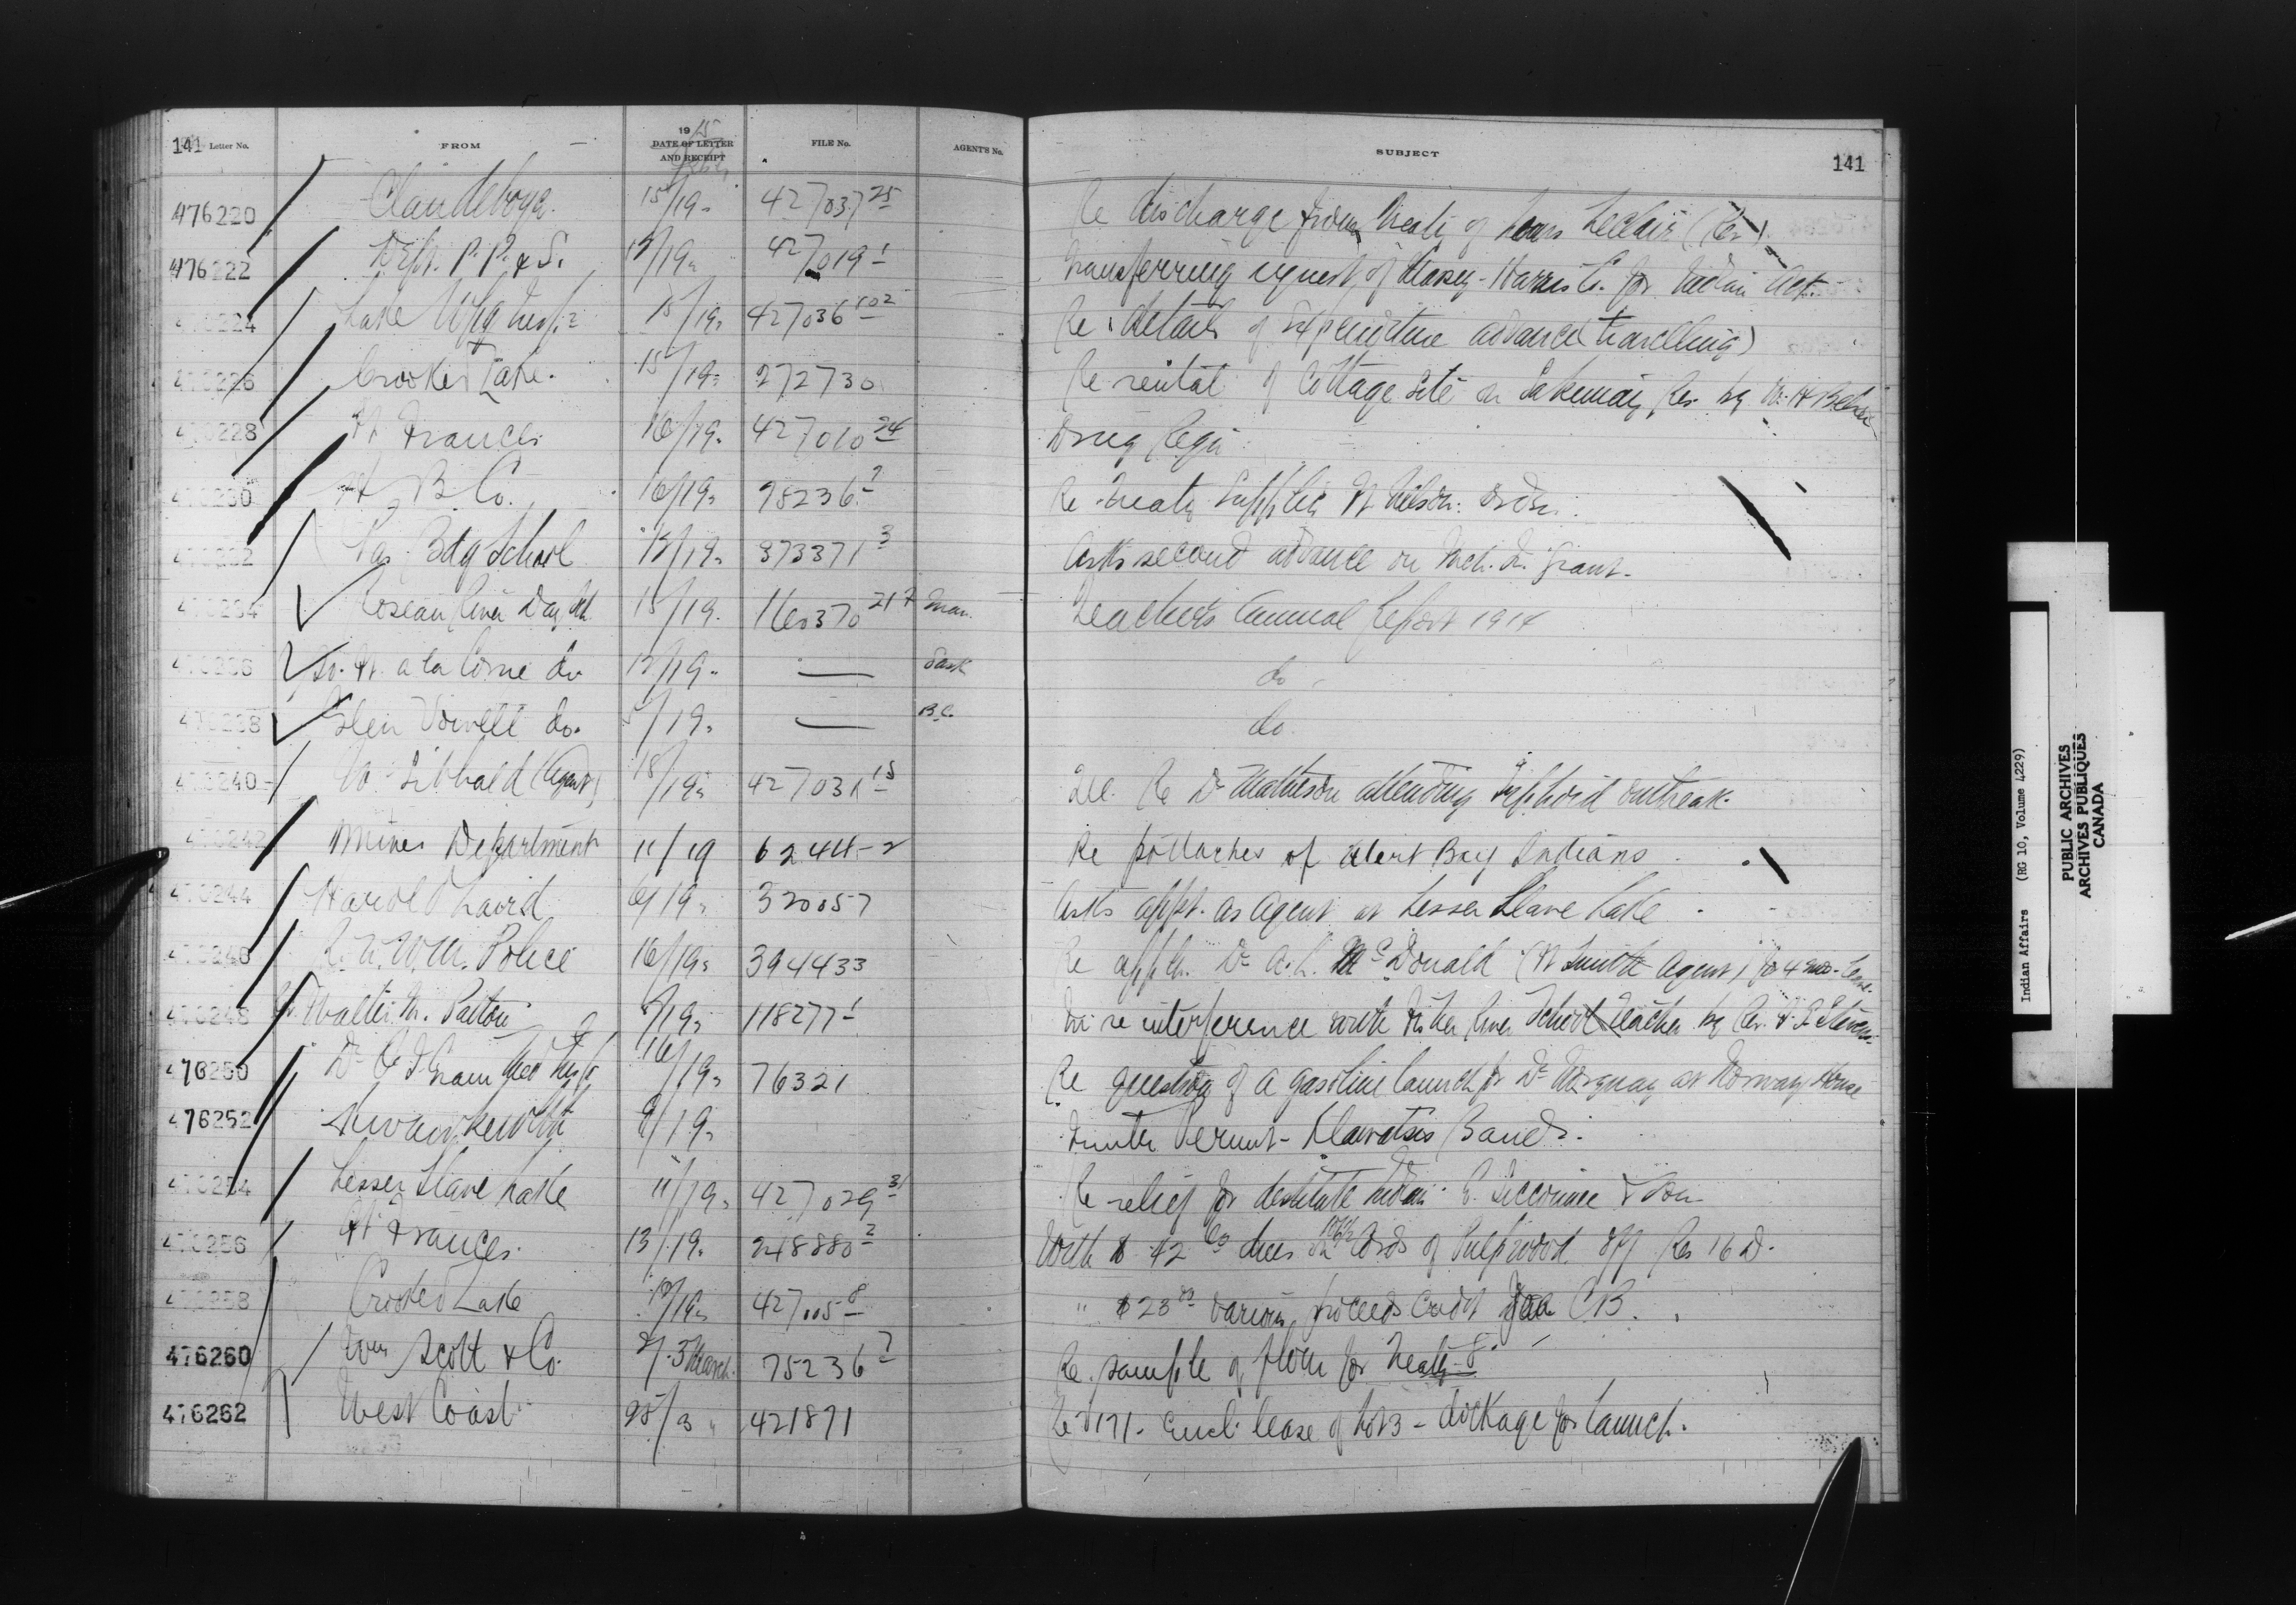 141 Letter No. FROM 1915 DATE OF LETTER AND RECEIPT FILE No. AGENT'S No. SUBJECT 141
476220 Clandeboye. 15/19 427037 25 Re discharge from Treaty of Leclair (Rev.)
476222 Dept. P.P. & S. 427019-1 Transferring request of Massey-Harris Co. for Indian Act.
476224 Lake Wpg Insp. 15/19 427036 102 Re details of Expenditure advance (travelling)
476226 Crooked Lake. 15/19 272730 Re rental of Cottage site on Sakemay Res. by W. H.
476228 Ft Frances 16/19 427010 24 Drug Reqn
476230 H B Co. 16/19 2 Re Treaty Supplies Ft Nelson.
476232 Pas Bdg School 19 373371 3 Asks second advance on Mch. Qr. Grant.
476234 Roseau River Day Sch 15/19 160370 217 Man. Teacher's Annual Report 1914
476236 Ft. a la Corne do. 19 — Sask do
476238 Glen Vowell do. 19 — B.C. do.
476240 W. Sibbald (Agent) 15/19 427031 15 Tel. Re Dr Matheson attending Typhoid outbreak.
476242 Mines Department 11/19 62444-2 Re potlaches of Alert Bay Indians
476244 Harold Laird 19 320057 Asks appt. as Agent at Lesser Slave Lake
476246 R.N.W.M. Police 16/19 394433 Re appln. Dr A. L. McDonald (Ft Smith Agent) for 4 mos. Leave
476248 Walter M. Patton 19 118277-1 re interference with Fisher River School Teacher by Rev.
476250 Dr 16/19 76321 Re question of a gasoline launch for Dr at Norway House
476252 Kwawkewlth 9/19 Timber Permit - Klawatsis Band.
476254 Lesser Slave Lake 11/19 427029 31 Re relief for destitute Indian & Son
476256 Ft Frances. 13/19. 248880 2 With $ 42 dues on Cords of Pulpwood off Res 16 D.
476258 Crooked Lake 19 427005-8 " $23 various proceeds credit C B.
476260 Wm Scott & Co. 3 March. 75236 7 Re sample of flour for Treaty 8
476262 West Coast 25/3 " 421871 Re Encl. lease of Lot 3 - dockage for launch.
Indian Affairs (RG 10, Volume 4229)
PUBLIC ARCHIVES
ARCHIVES PUBLIQUES
CANADA